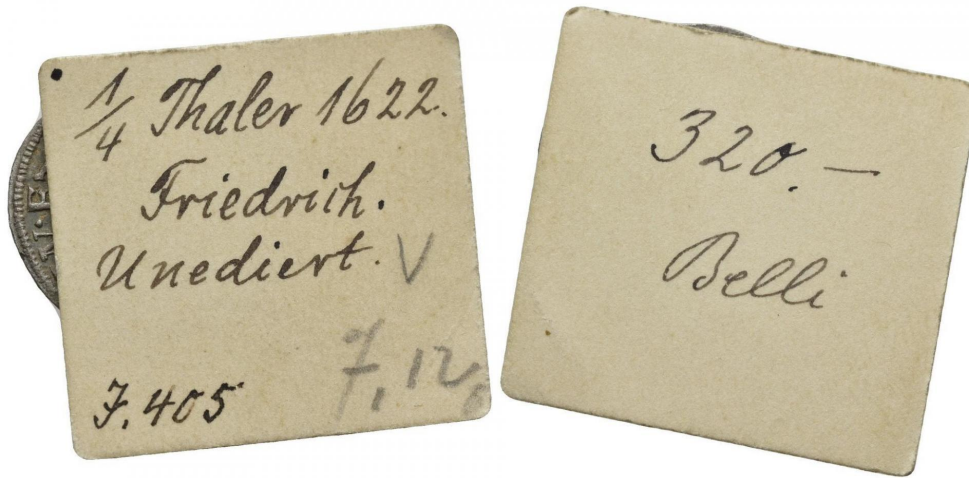 1/4 Thaler 1622.
Friedrich.
Unediert. V
7,12
F. 405
320.—
Belli